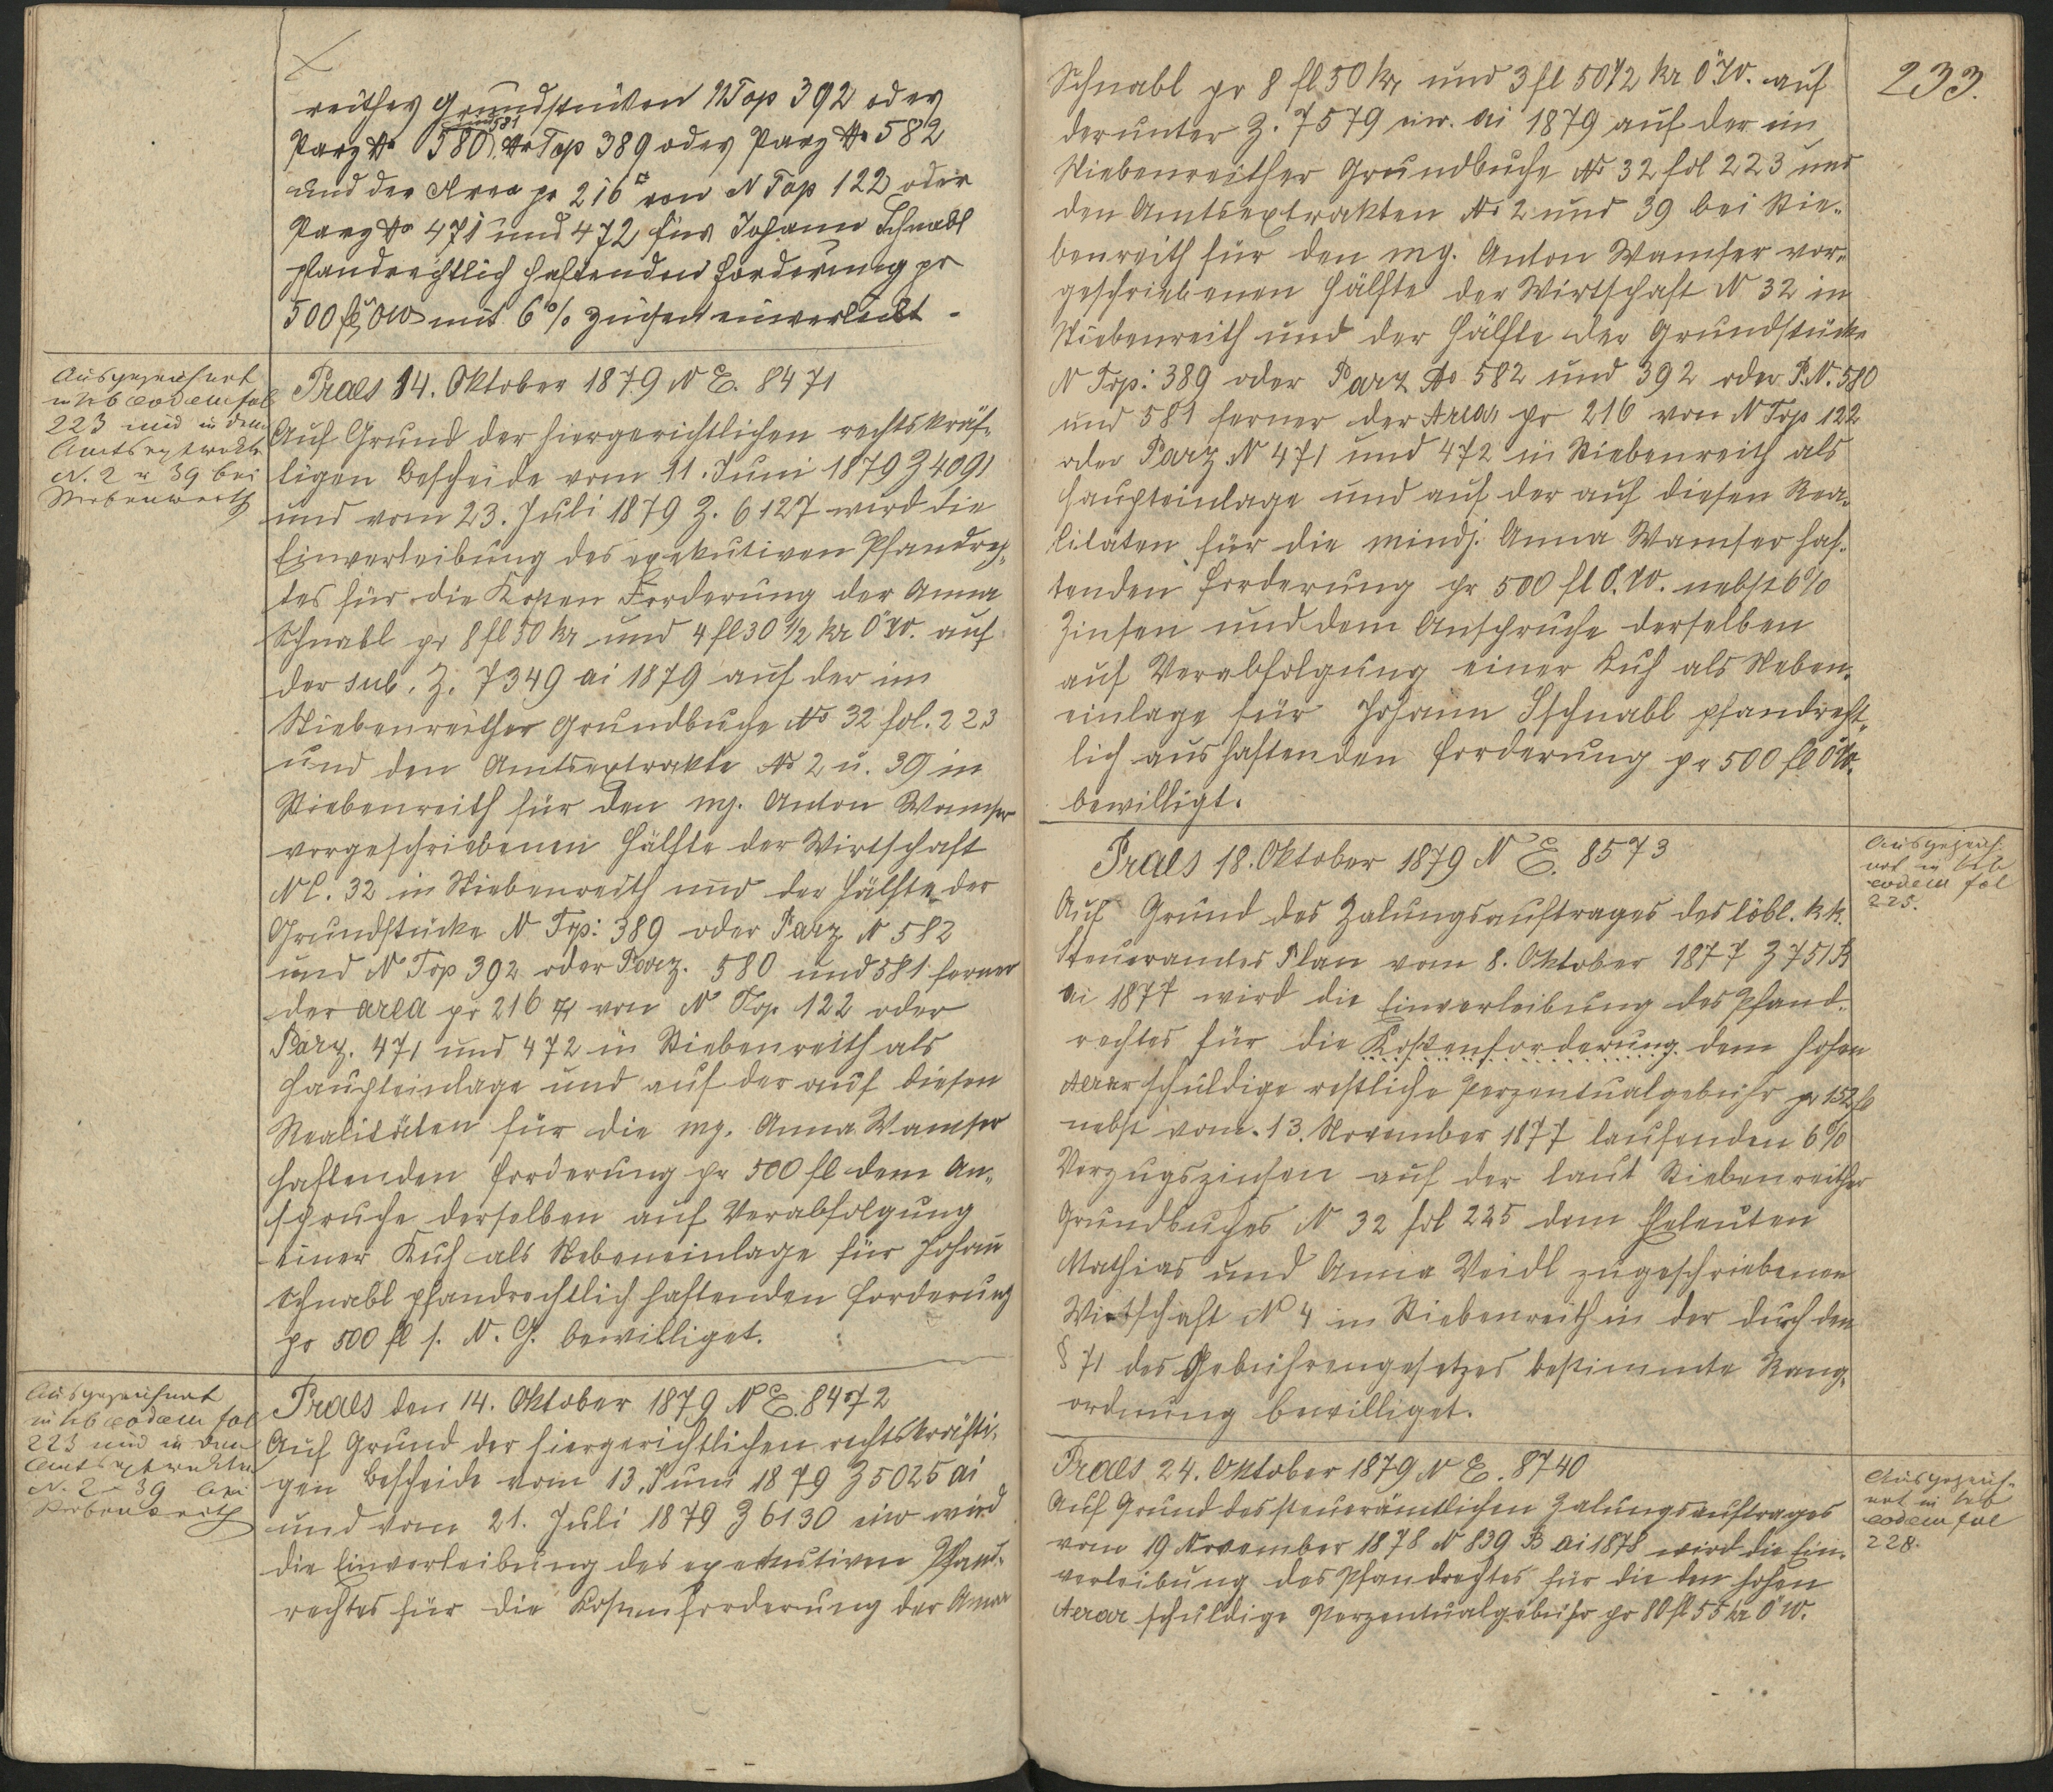 reither Grundstücken NTop 392 oder
und 581
Parz No 580, No Top 389 oder Parz No 582
und der Area pr 216 von N Top 122 oder
Parz No 471 und 472 für Johann Schnabl
pfandrechtlich haftenden Forderung pr
500 fl ÖW mit 6% Zinsen einverleibt.
Ausgezeichnet
in lib eodem fol
223 und in den
Amtsextrakten
N. 2 u 39 bei
Stiebenreith
Praes 14. Oktober 1879 N E. 8471
Auf Grund der hiergerichtlichen rechtskräf-
tigen Bescheide vom 11. Juni 1879 Z 4091
und vom 23. Juli 1879 Z. 6127 wird die
Einverleibung des exekutiven Pfandrech-
tes für die Kosten Forderung der Anna
Schnabl pr 8 fl 50 kr und 4 fl 30 1/2 kr ÖW. auf
der sub. Z. 7349 ai 1879 auf der im
Stiebenreither Grundbuche No 32 fol. 223
und den Amtsextrakte No 2 u. 39 in
Stiebenreith für den mg. Anton Wamser
vorgeschriebenen Hälfte der Wirtschaft
NC. 32 in Stiebenreith und der Hälfte der
Grundstücke N Top: 389 oder Parz N 582
und N Top 392 oder Parz. 580 und 581 ferner
der area pr 216 von N Top 122 oder
Parz. 471 und 472 in Stiebenreith als
Haupteinlage und auf der auf diesen
Realitäten für die mg. Anna Wamser
haftenden Forderung pr 500 fl dem An-
spruche derselben auf Verabfolgung
einer Kuh als Nebeneinlage für Johann
Schnabl pfandrechtlich haftenden Forderung
pr 500 fl s. N. G. bewilliget.
Ausgezeichnet
in lib eodem fol
223 und in den
Amtsextrakten
N. 2 u 39 bei
Stiebenreith
Praes den 14. Oktober 1879 N E. 8472
Auf Grund der hiergerichtlichen rechtskräfti-
gen Bescheide vom 13. Juni 1879 Z 5025 ai
und vom 21. Juli 1879 Z 6130 eiw wird
die Einverleibung des exekutiven Pfand-
rechtes für die Kostenforderung der Anna
233.
Schnabl pr 8 fl 50 kr und 3 fl 50 1/2 kr ÖW. auf
der unter Z. 7579 eiw. ai 1879 auf der im
Stiebenreither Grundbuche No 32 fol 223 und
den Amtsextrakten No 2 und 39 bei Stie-
benreith für den mg. Anton Wamser vor-
geschriebenen Hälfte der Wirtschaft N 32 in
Stiebenreith und der Hälfte der Grundstücke
N Top: 389 oder Parz No 582 und 392 oder P.N. 580
und 581 ferner der Area pr 216 von N Top 122
oder Parz N 471 und 472 in Stiebenreith als
Haupteinlage und auf der auf diesen Rea-
litäten für die mindj. Anna Wamser haf-
tenden Forderung pr 500 fl Ö.W. nebst 6%
Zinsen und dem Anspruche derselben
auf Verabfolgung einer Kuh als Neben-
einlage für Johann Schnabl pfandrecht-
lich aushaftenden Forderung pr 500 fl ÖW.
bewilligt.
Praes 18. Oktober 1879 N E. 8573
Ausgezeich-
net in lib
eodem fol
225.
Auf Grund des Zalungsauftrages des löbl. k.k.
Steueramtes Plan vom 8. Oktober 1877 Z 751 B
ai 1877 wird die Einverleibung des Pfand-
rechtes für die Kostenforderung dem hohen
Aerar schuldige restliche Perzentualgebühr pr 152 fl
nebst vom 13. November 1877 laufenden 6%
Verzugszinsen auf der laut Stiebenreither
Grundbuches N 32 fol 225 dem Eheleuten
Mathias und Anna Veidl zugeschriebenen
Wirtschaft N 4 in Stiebenreith in der durch den
§ 71 des Gebührengesetzes bestimmte Rang-
ordnung bewilliget.
Praes 24. Oktober 1879 N E. 8740
Ausgezeich-
net in lib
eodem fol
228.
Auf Grund des steuerämtlichen Zalungsauftrages
vom 19 November 1878 N 839 B ai 1878 wird die Ein-
verleibung des Pfandrechtes für die dem hohen
Aerar schuldige Perzentualgebühr pr 80 fl 55 kr ÖW.